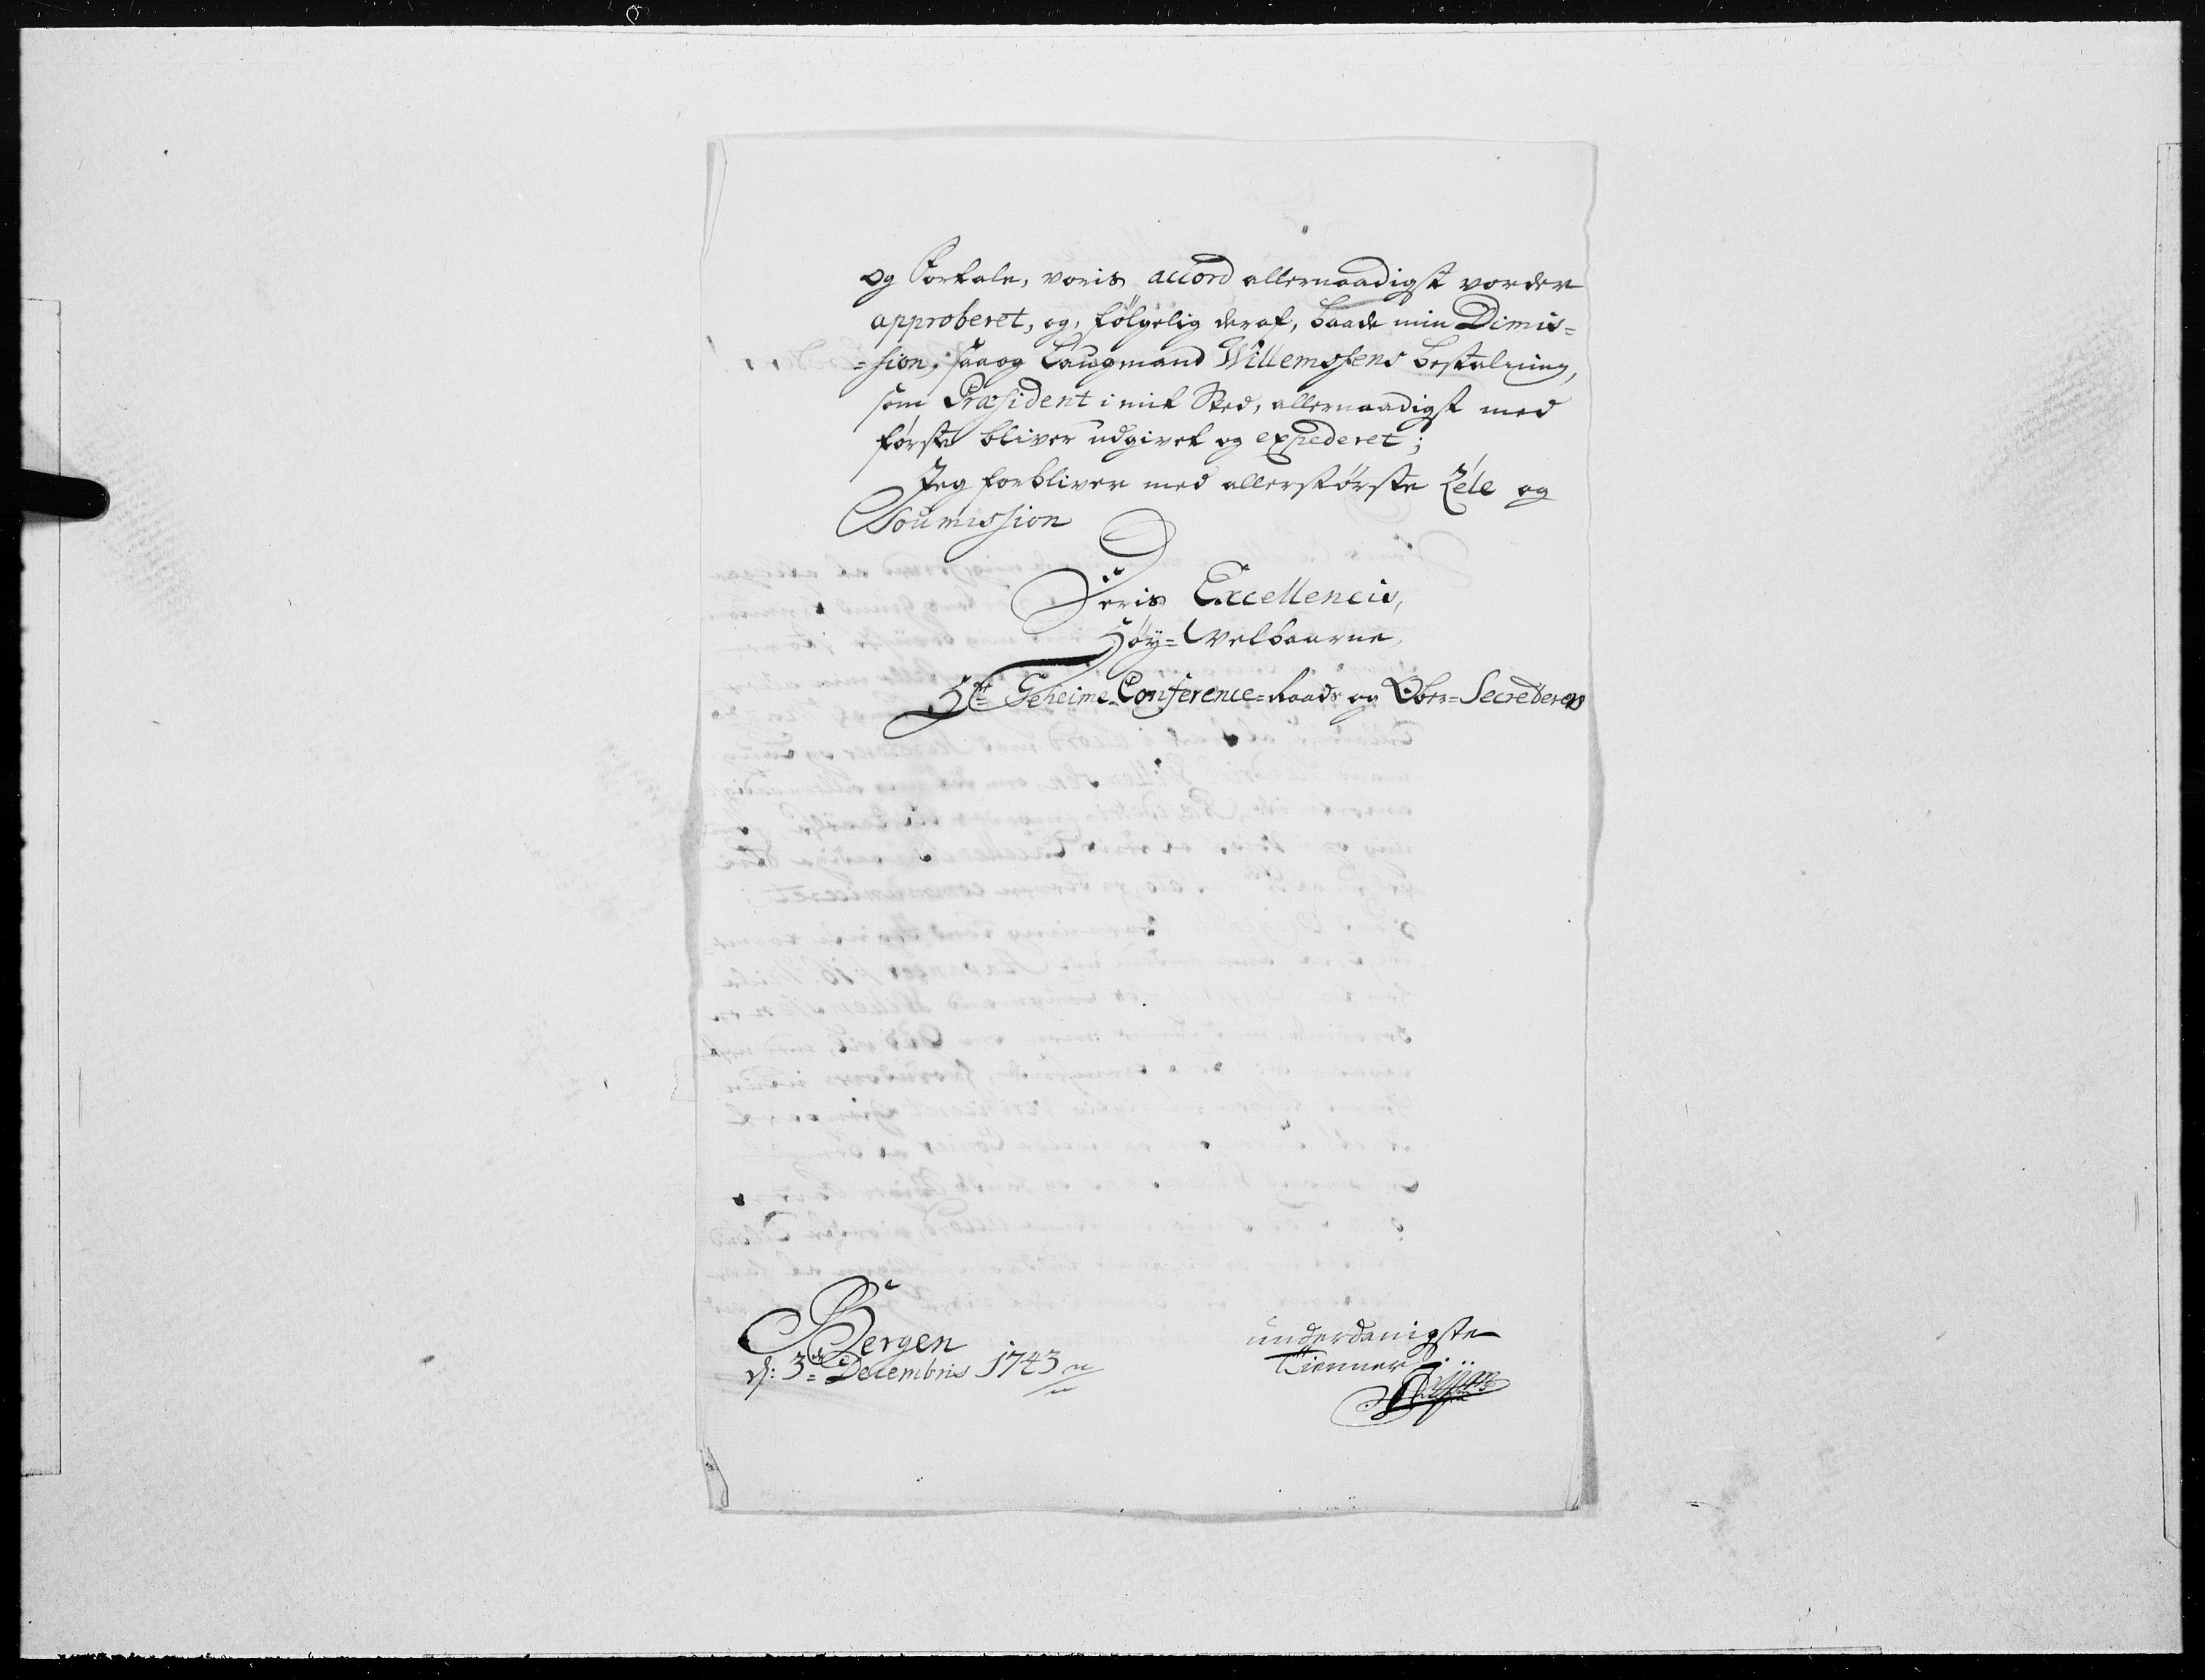 og Fortale, voris accord allernaadigst vorder
approberet, og, fölgelig deraf, baade min Dimis=
=sion, saa og Laugmand Willemssens Bestalning,
som Præsident i mit Sted, allernaadigst med
förste bliver udgivet og expederet;
Jeg forbliver med allerstörste Zéle og
Soumission
Deris Excellencis,
Höy=Velbaarne
Hr Geheime-Conference=Raads og Ober=Secreterers
underdanigste
Tienner
Bergen
d: 3de Decembris 1743